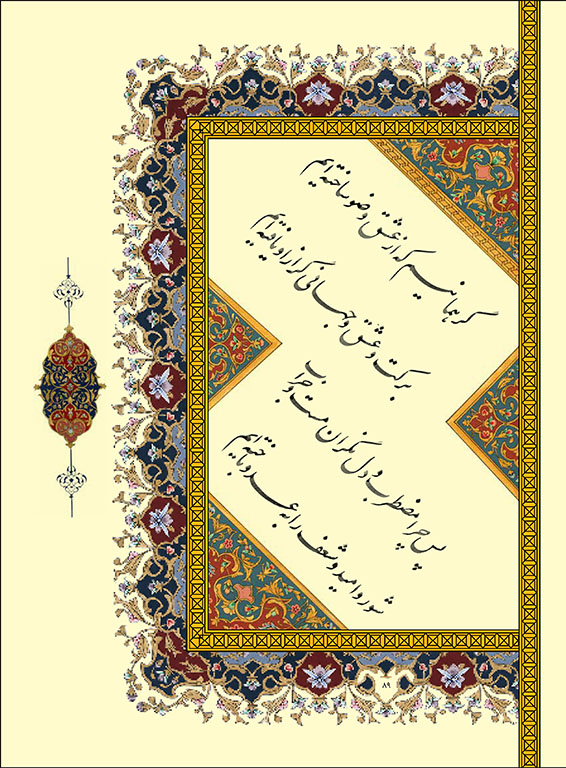 گر همانیم که از عشق وضو ساخته ایم
برکت و عشق و جهانی گر از او یافته ایم
پس چرا مضطرب و دل نگران مست و خراب
شور و امید و شعف را به عدو باخته ایم
۸۹